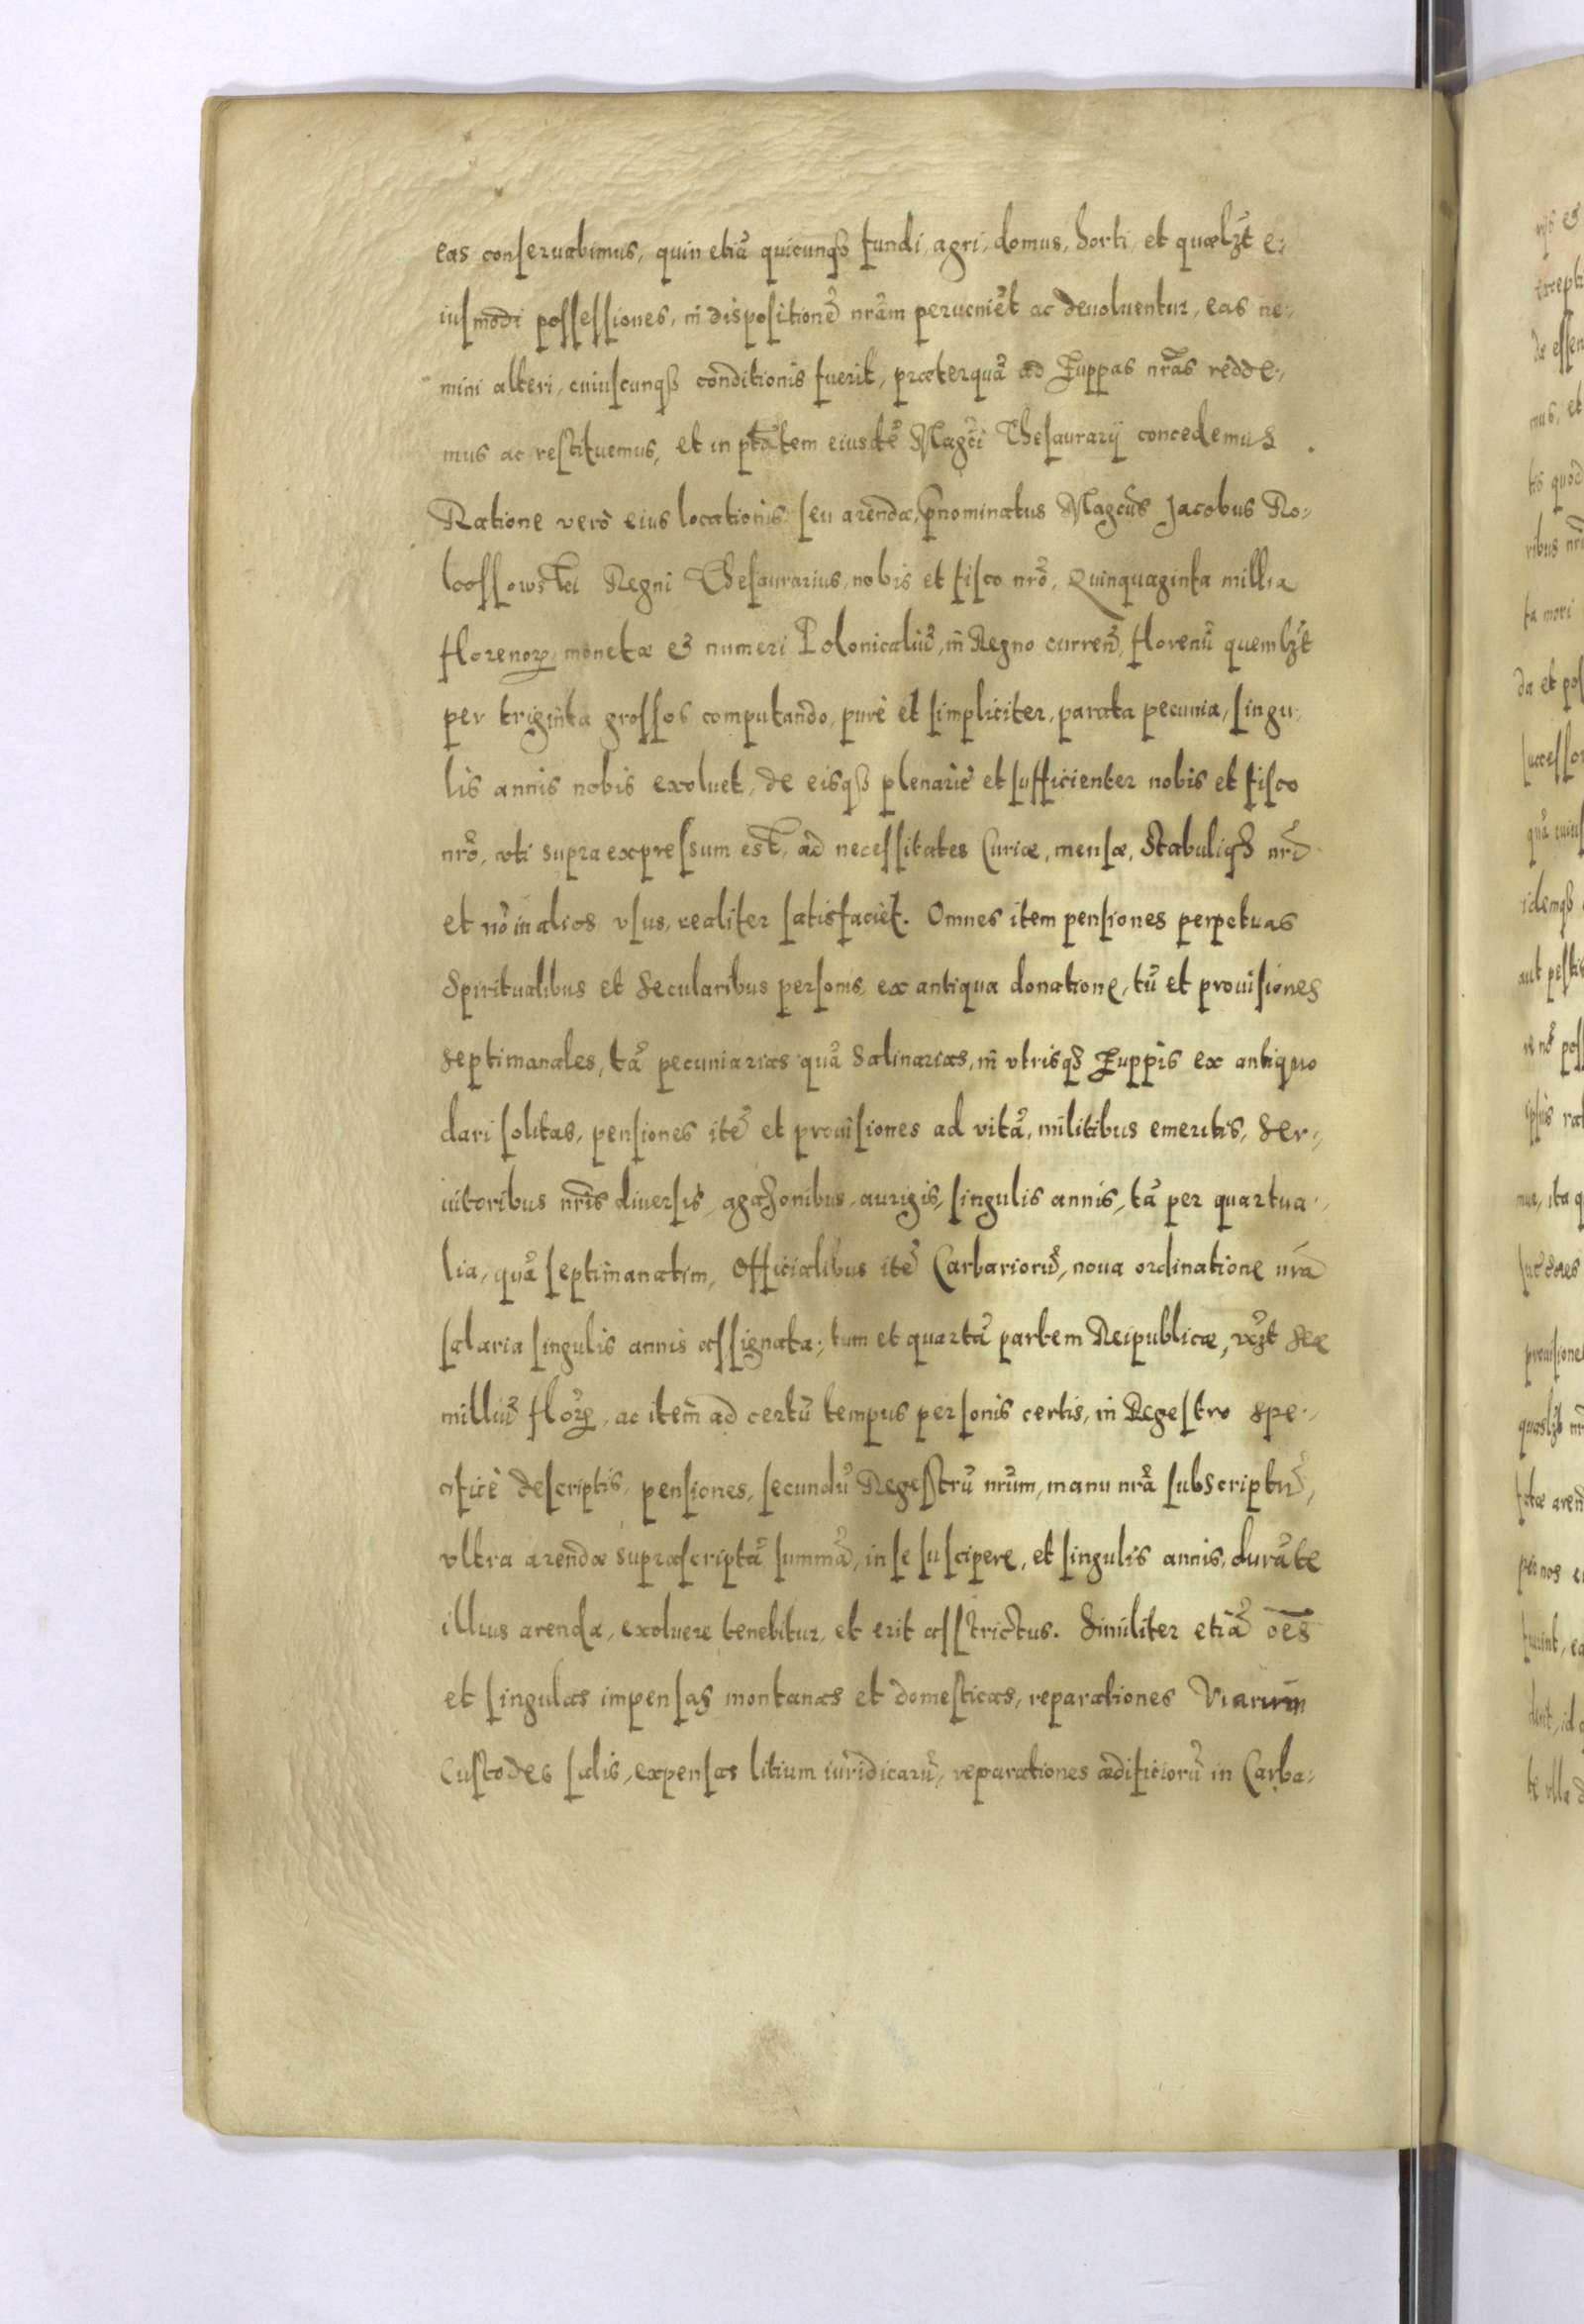 eas conſeruabimus, quin etiã quicunqȝ fundi, agri, domus, horti, et quælꝫt e:
iuſmodi poſſeſſiones, in dispoſitionẽ nrãm perueniẽt ac deuoluentur, eas ne:
mini alteri, cuiuſcunqȝ conditionis fuerit, præterquã ad Zuppas nrãs redde:
mus ac reſtituemus, et in ptãtem eiusdẽ Magci Theſaurarij concedemus.
Ratione verò eius locationis ſeu arendæ, pnominatus Magcus Jacobus Ro:
koſſowski Regni Theſaurarius, nobis et fiſco nrõ, Quinquaginta millia
florenoꝝ, monetæ et numeri Polonicaliũ, in Regno curreñ, florenũ quemlꝫt
per triginta groſſos computando, purè et ſimpliciter, parata pecunia, ſingu:
lis annis nobis exoluet, de eisqȝ plenariè et ſufficienter nobis et fiſco
nrõ, uti supra expreſsum est, ad neceſſitates Curiæ, menſæ, Stabuliqȝ nrĩ
et nõ in alios vſus, realiter ſatisfaciet. Omnes item penſiones perpetuas
Spiritualibus et Secularibus perſonis, ex antiqua donatione, tũ et prouiſiones
Septimanales, tã pecuniarias quã Salinarias, in vtrisqȝ Zuppis ex antiquo
dari ſolitas, penſiones itẽ et prouiſiones ad vitã, militibus emeritis, Ser:
uitoribus nrĩs diuerſis, agaſonibus, aurigis, ſingulis annis, tã per quartua:
lia, quã ſeptimanatim, Officialibus itẽ Carbariorũ, noua ordinatione nrã
ſalaria ſingulis annis aſſignata; tum et quartã partem Reipublicæ, vꝫt Sex
milliũ floꝝ, ac item ad certũ tempus perſonis certis, in Regeſtro Spe:
cificè deſcriptis, penſiones, ſecundũ Regeſtrũ nrũm, manu nrã ſubscriptũ,
vltra arendæ supraſcriptã ſummã, in ſe ſuſcipere, et ſingulis annis, durãte
illius arenda, exoluere tenebitur, et erit aſſtrictus. Similiter etiã oẽs
et ſingulas impenſas montanas et domeſticas, reparationes Viarum
Cuſtodes ſalis, expenſas litium iuridicarũ, reparationes ædificiorũ in Carba: